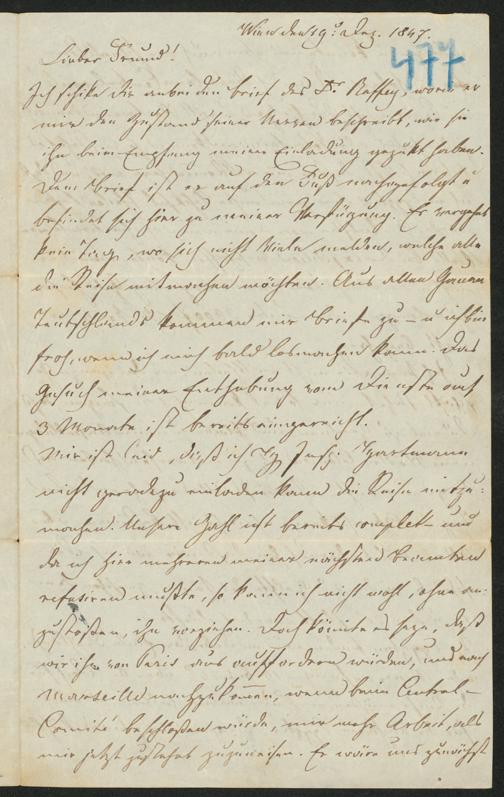 Wien den 19t Dez. 1847.
477
Lieber Freund!
Ich schike Dir anbei den Brief des Dr, worin er
mir den Zustand seiner Nerven beschreibt, wie sie
ihn beim Empfang meiner Einladung gezukt haben.
Dem Brief ist er auf den Fuß nachgefolgt u
befindet sich hier zu meiner Verfügung. Es vergeht
kein Tag, wo sich nicht Viele melden, welche alle
die Reise mitmachen möchten. Aus allen Gauen
Teutschlands kommen mir Briefe zu – u ich bin
froh, wenn ich mich bald losmachen kann. Das
Gesuch meiner Enthebung vom Dienste auf
3 Monate ist bereits eingereicht.
Mir ist leid, daß ich Hartmann
nicht geradezu einladen kann die Reise mitzu-
machen. Unsere Zahl ist bereits complet – und
da ich hier mehreren meiner nächsten Beamten
refusiren mußte, so kann ich nicht wohl, ohne an-
zustoßen, ihn vorziehen. Doch könnte es seyn, daß
wir ihn von Paris aus auffordern würden, uns nach
Marseille nachzukommen, wenn beim Central-
Comité beschloßen würde, mir mehr Arbeit, als
mir jetzt zusteht zuzuweisen. Er wäre uns zunächst